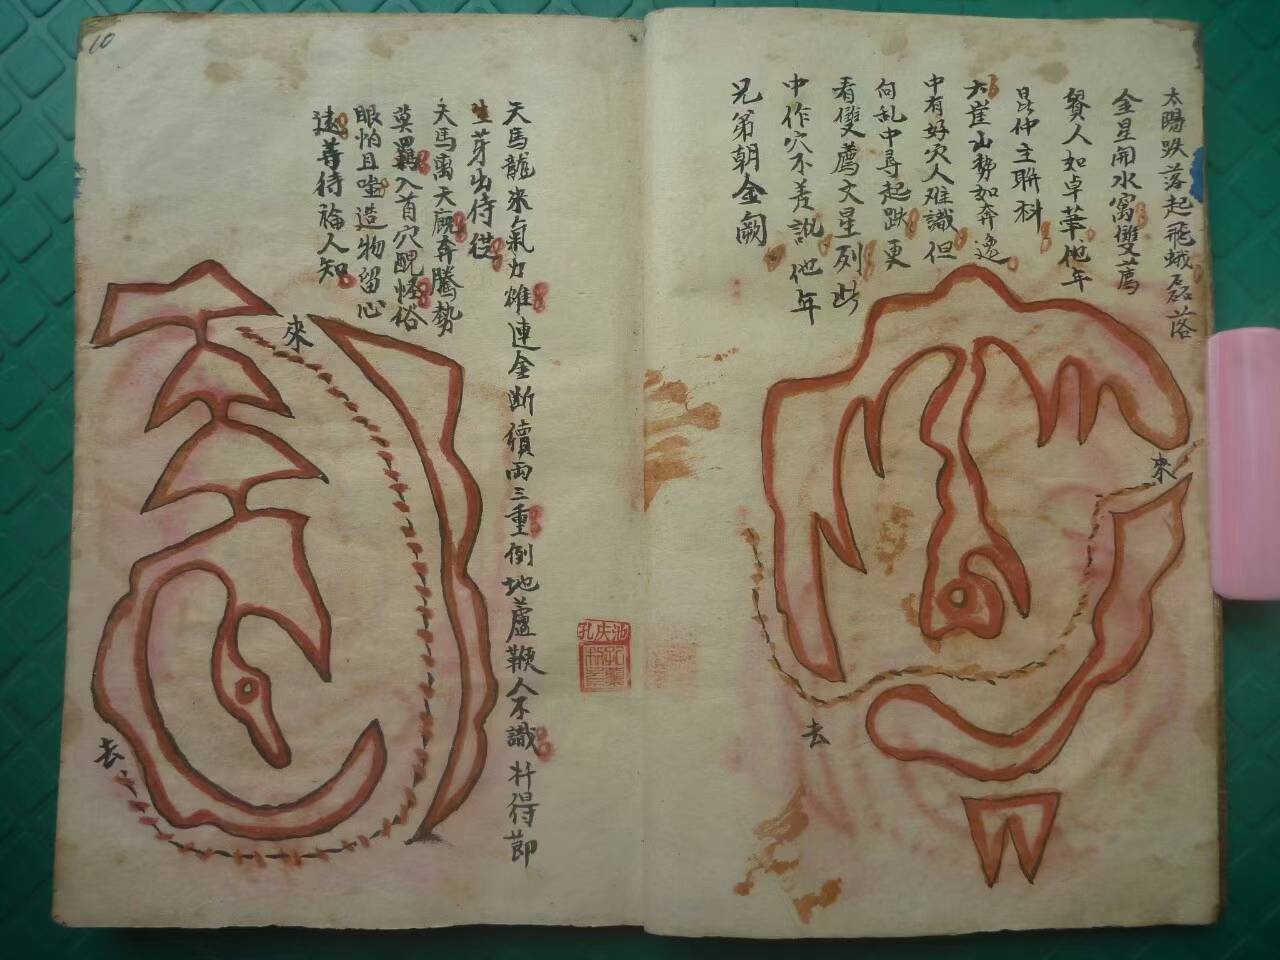 太陽跌落起飛蛾磊落
金星開水窩雙薦
賢人如卓華他年
昆仲主聯科
大崔山勢如奔逸
中有好穴人难識但
向乱中尋起跌更
看雙薦文星列此
中作穴不差訛他年
兄弟朝金闕
來
去
天馬龍來氣力雄連金断續兩三重倒地蘆鞭人不識扦得節
生芽出侍從
天馬离天廐奔騰勢
莫羈入首穴醜怪俗
眼怕且嗤造物留心
遠等待福人知
來
去
10